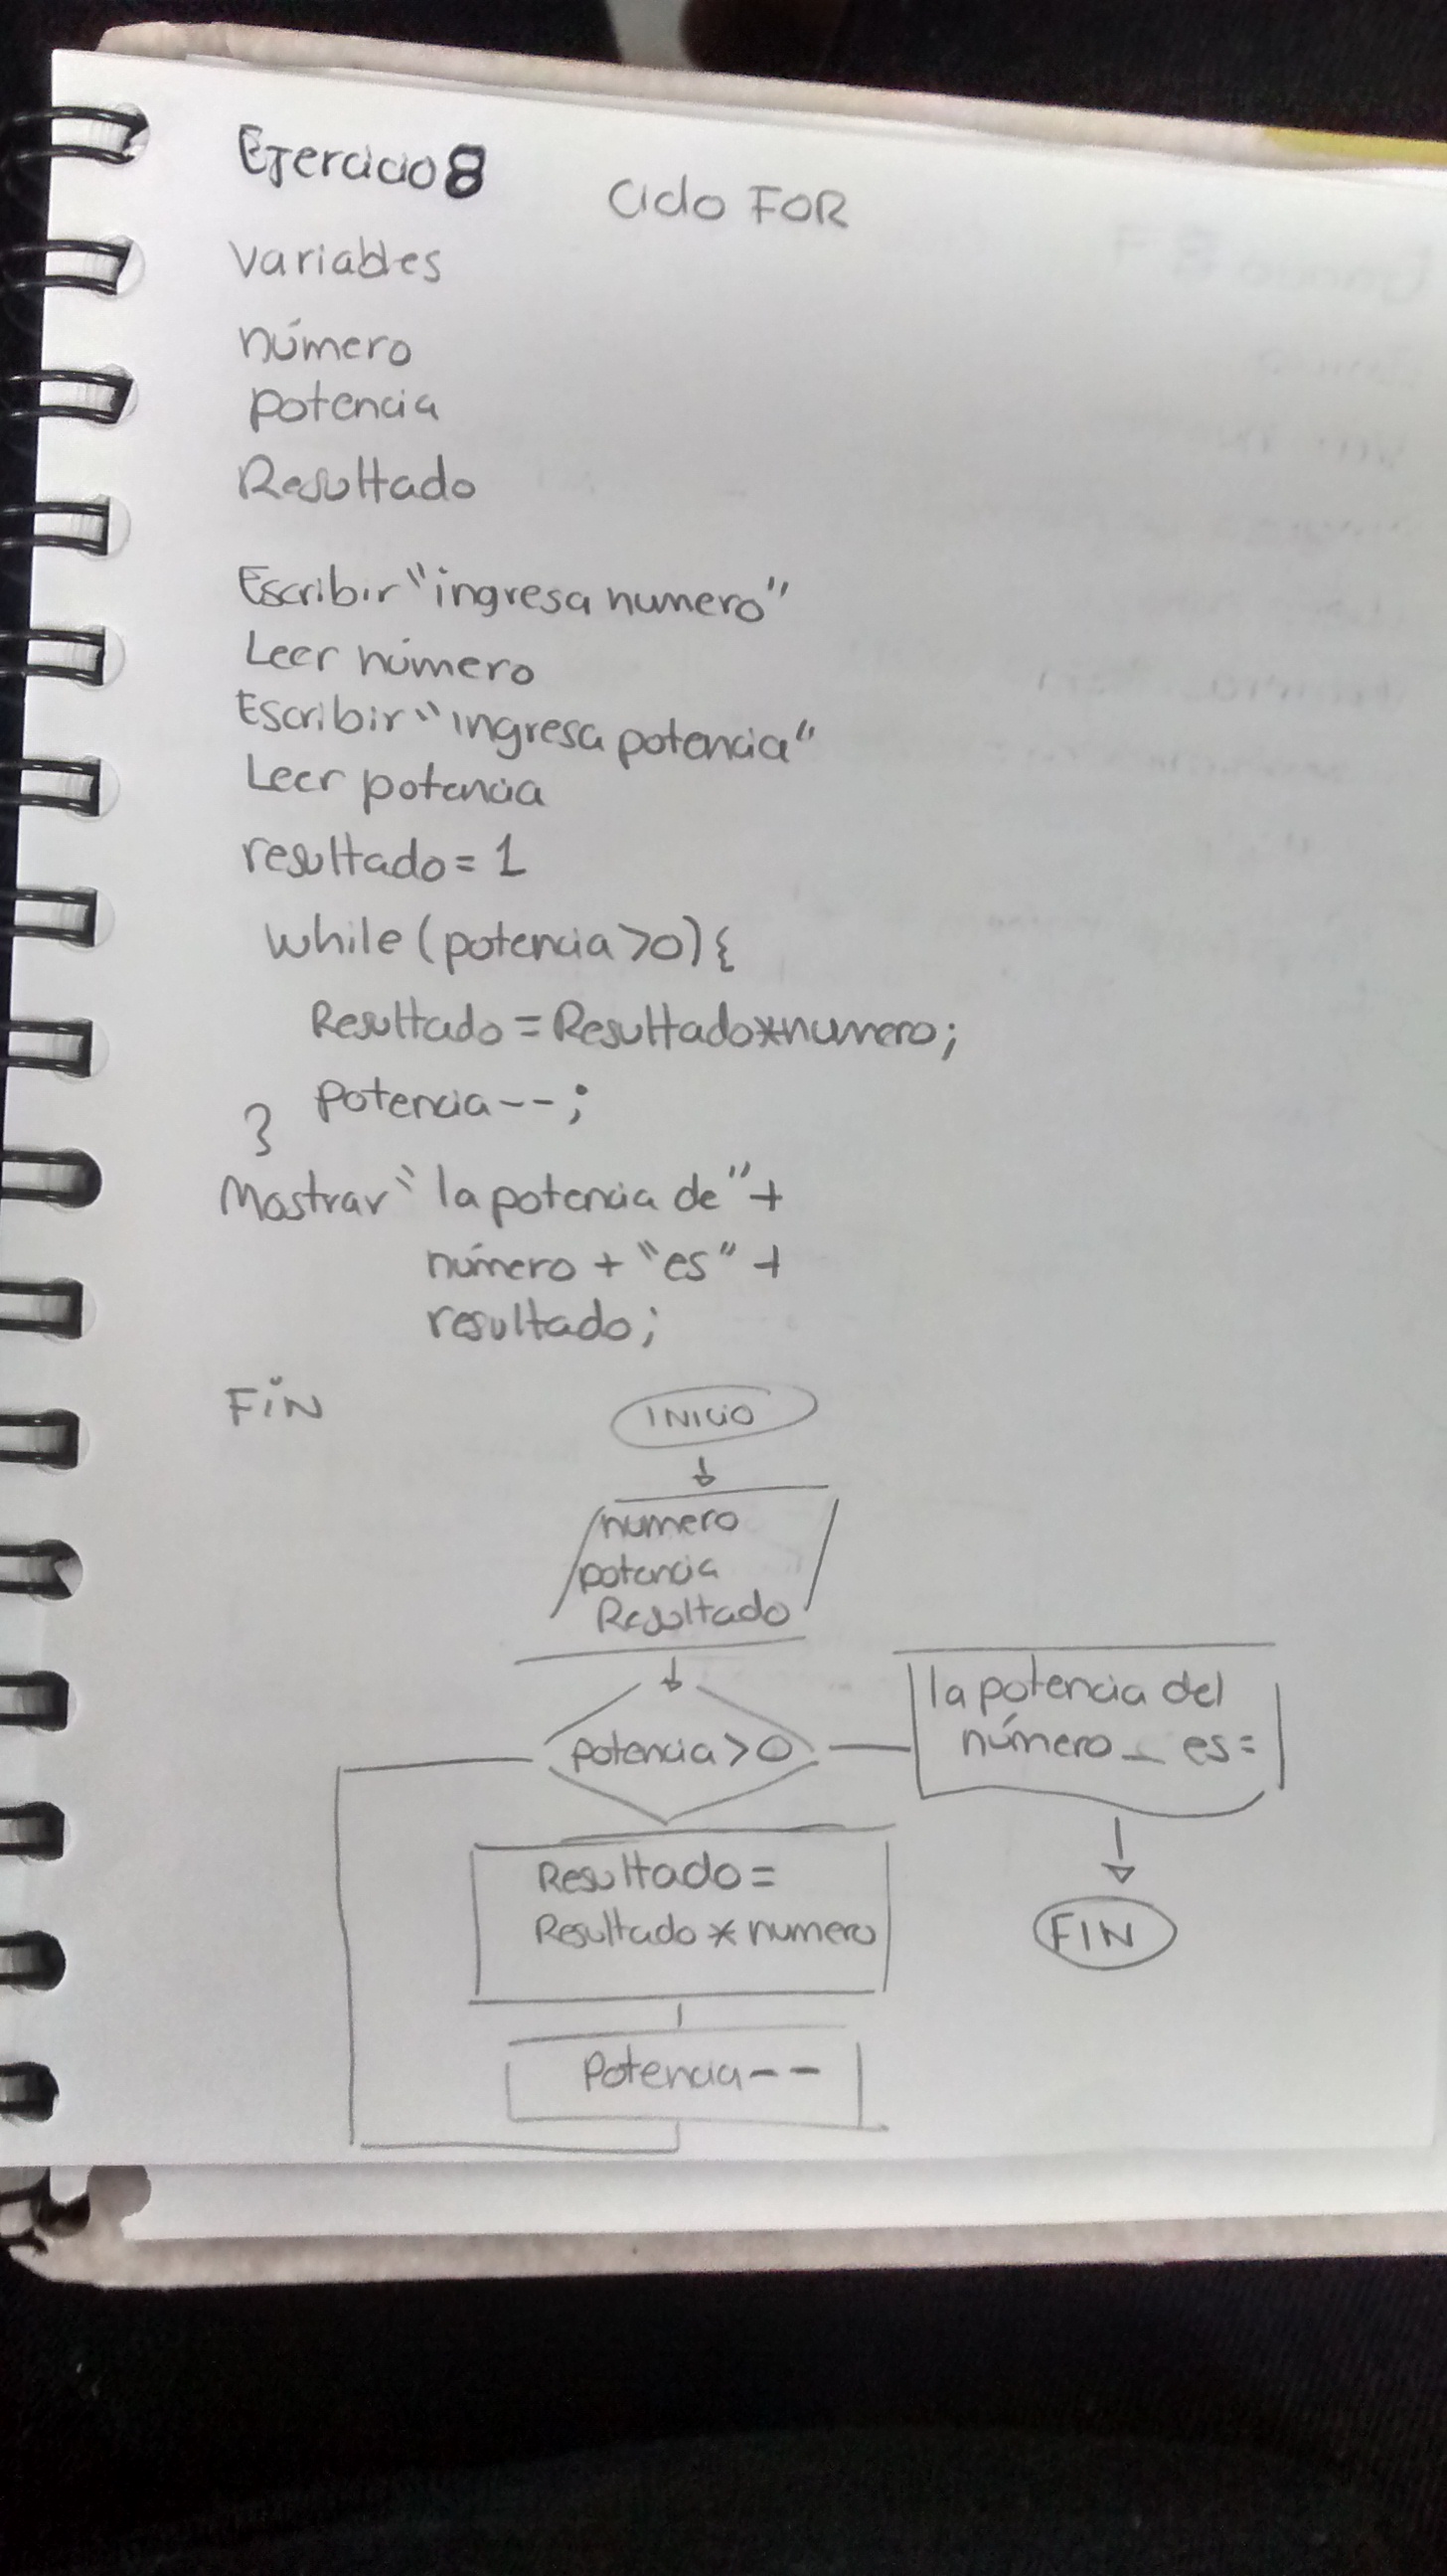 Ejercicio 8
Ciclo FOR
Variables
número
potencia
Resultado
Escribir "ingresa numero"
Leer número
Escribir "ingresa potencia"
Leer potencia
resultado = 1
While (potencia>0){
Resultado = Resultado*numero;
potencia--;
}
Mostrar "la potencia de" +
número + "es" +
resultado;
FiN
INICIO
numero
potencia
Resultado
potencia > 0
la potencia del
número _ es =
Resultado =
Resultado * numero
Potencia --
FIN